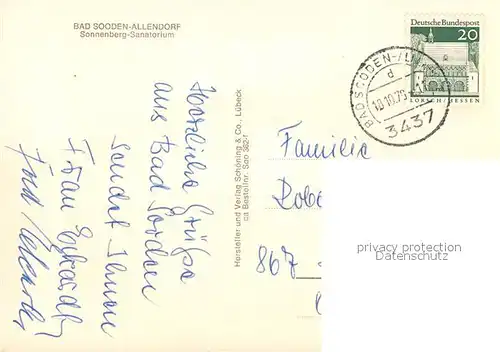 BAD SOODEN-ALLENDORF
Sonnenberg-Sanatorium
Deutsche Bundespost
20
LORSCH/HESSEN
BAD SOODEN-
d
10.10.70
3437
Herzliche Grüße
aus Bad Sooden
sendet Ihnen
Frau
Hersteller und Verlag Schöning & Co., Lübeck
Bestellnr. Soo 362-1
Familie
Robe
867
privacy protection
Datenschutz